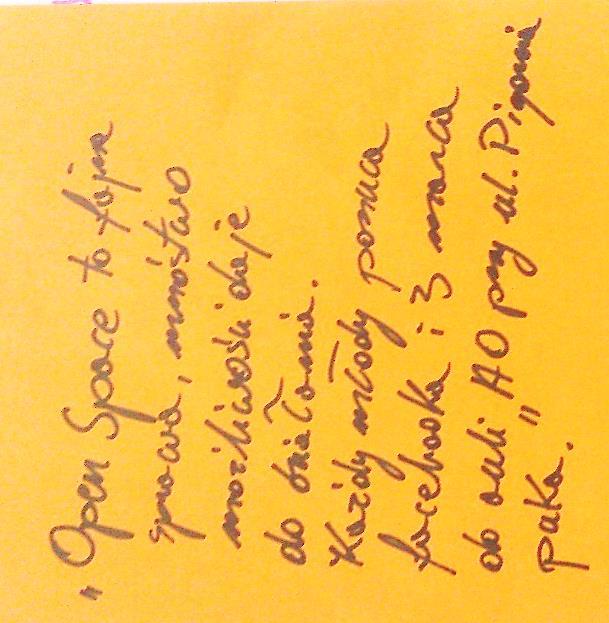 „Open Space to fajna
sprawa, mnóstwo
możliwości daje
do działania.
Każdy młody porzuca
facebooka i 3 marca
do auli "AO przy ul. Pigonia
paka.